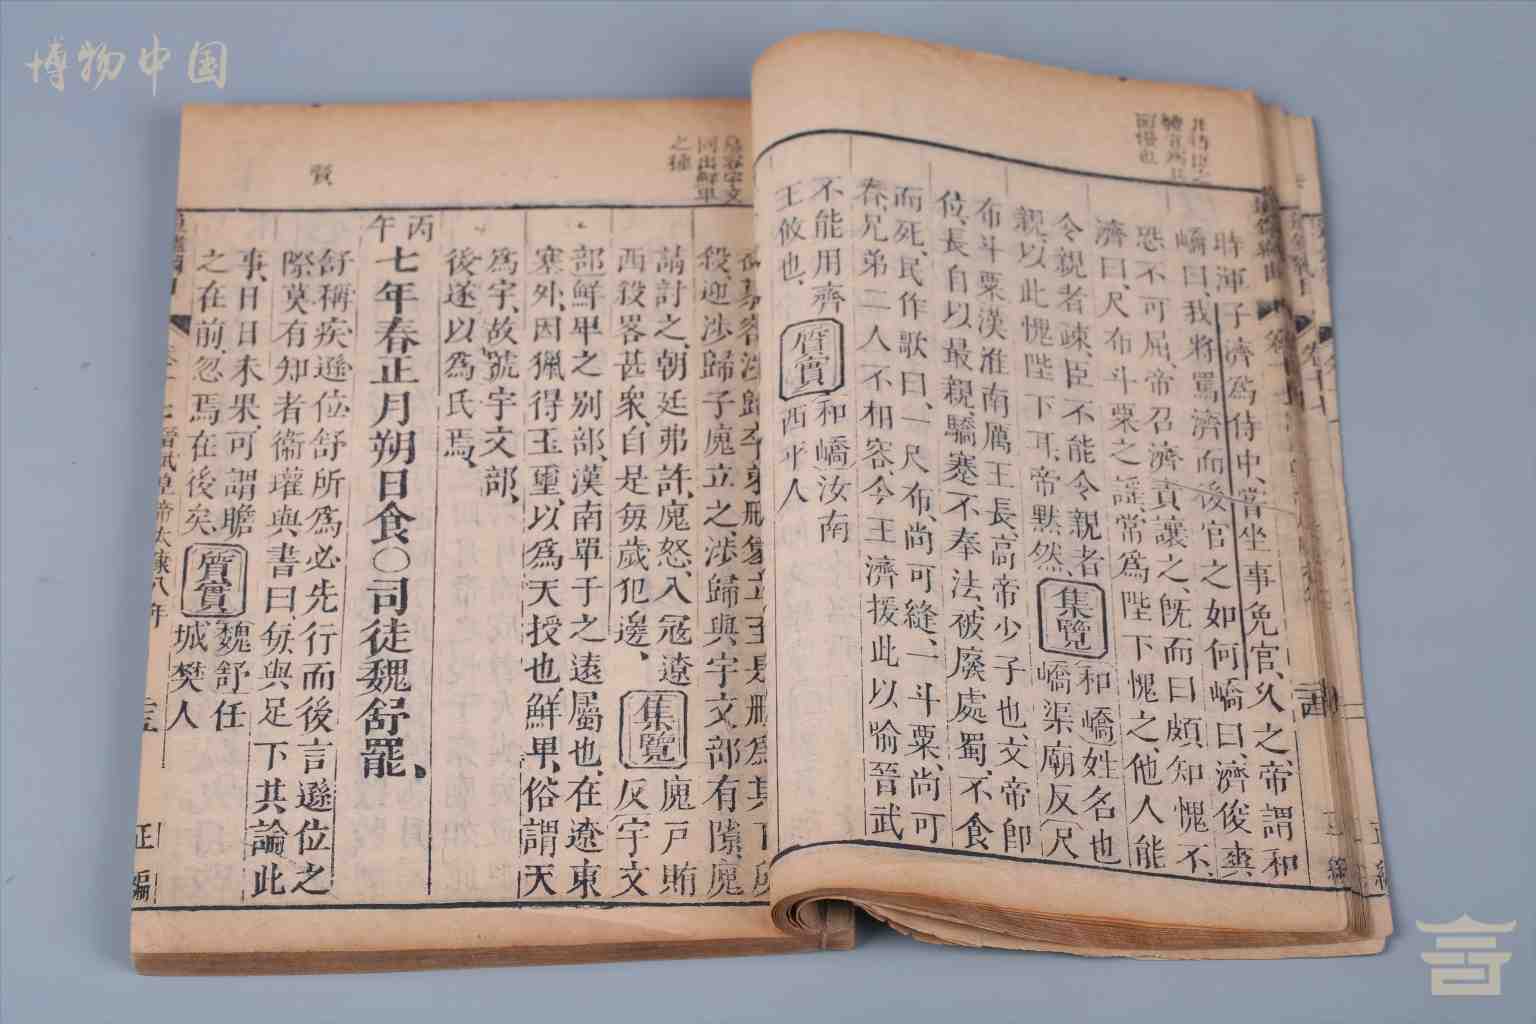 博物中国
時渾子濟爲侍中、嘗坐事免官、久之、帝謂和
嶠曰、我將罵濟而後官之、如何、嶠曰、濟俊爽
恐不可屈、帝召濟責讓之、旣而曰、頗知愧不、
濟曰、尺布斗粟之謡、常爲陛下愧之、他人能
令親者疎、臣不能令親者
親、以此愧陛下耳、帝默然、集覽和嶠姓名也
嶠渠廟反尺
布斗粟漢淮南厲王長、高帝少子也、文帝卽
位、長自以最親、驕蹇不奉法、被廢處蜀、不食
而死、民作歌曰、一尺布、尚可縫、一斗粟、尚可
舂、兄弟二人不相容、今王濟援此以喻晉武
不能用齊
王攸也、質實和嶠汝南
西平人
慕容宇文
同出鮮卑
之種
殺、迎涉歸子廆立之、涉歸與宇文部有隙、廆
請討之、朝廷弗許、廆怒、入寇遼
西殺畧甚衆、自是每歲犯邊、集覽廆戸賄
反宇文
部鮮卑之別部、漢南單于之遠屬也、在遼東
塞外、因獵得玉璽、以爲天授也鮮卑、俗謂天
爲宇、故號宇文部、
後遂以爲氏焉、
丙午
七年春正月朔日食〇司徒魏舒罷、
舒稱疾遜位舒所爲必先行而後言遜位之
際莫有知者衞瓘與書曰、每與足下共論此
事、日日未果、可謂瞻
之在前、忽焉在後矣、質實魏舒任
城樊人
賛
晉武皇帝太康八年
正編